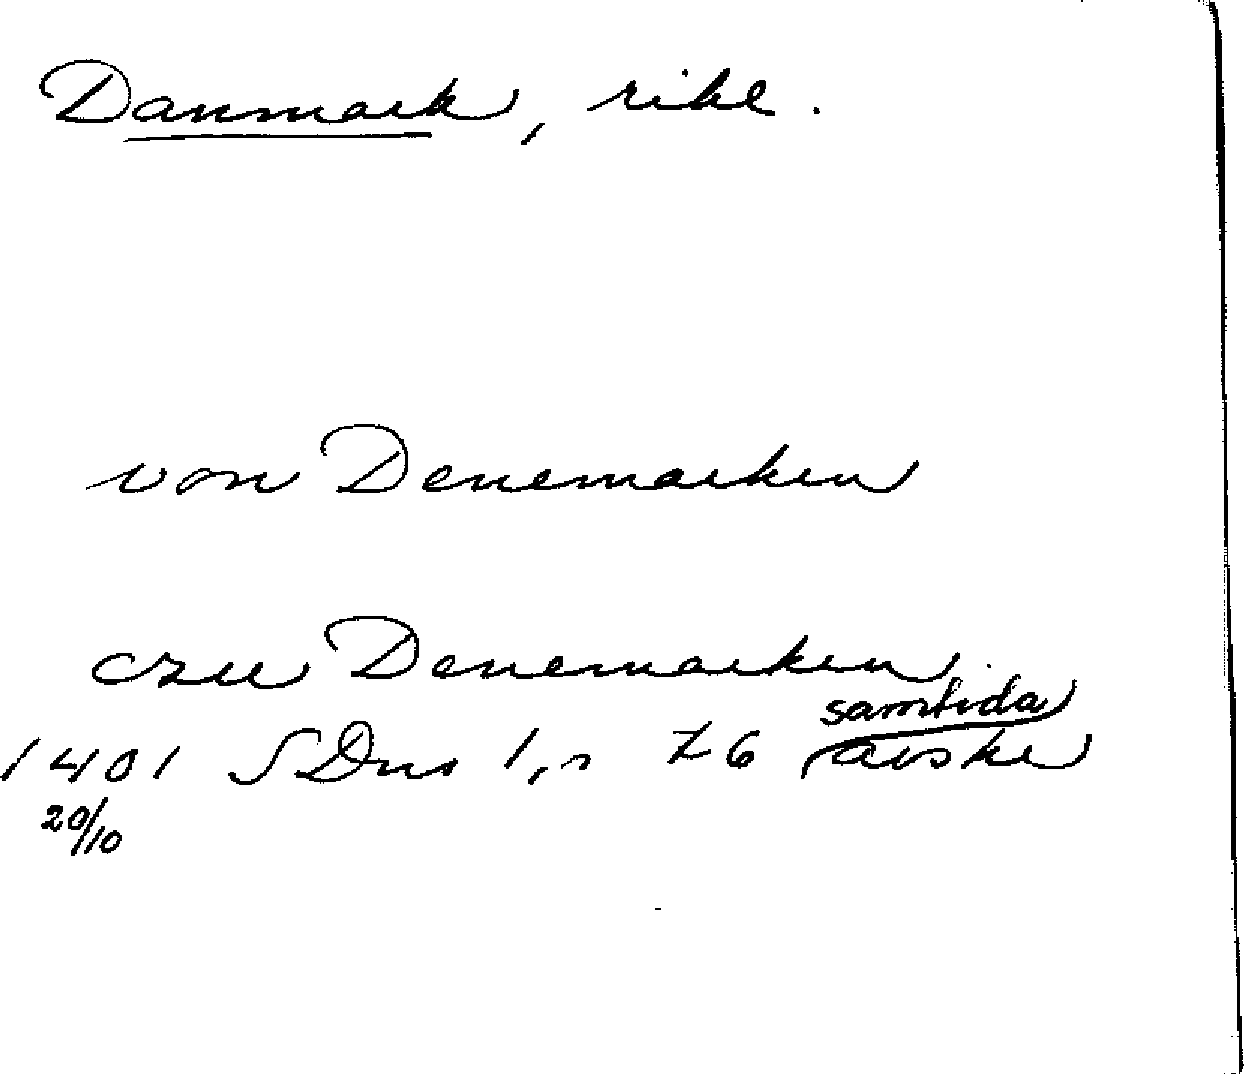 Danmark, rike.
von Denemarken
czu Denemarken.
samtida
1401 SDns 1, n 26 avskr
20/10